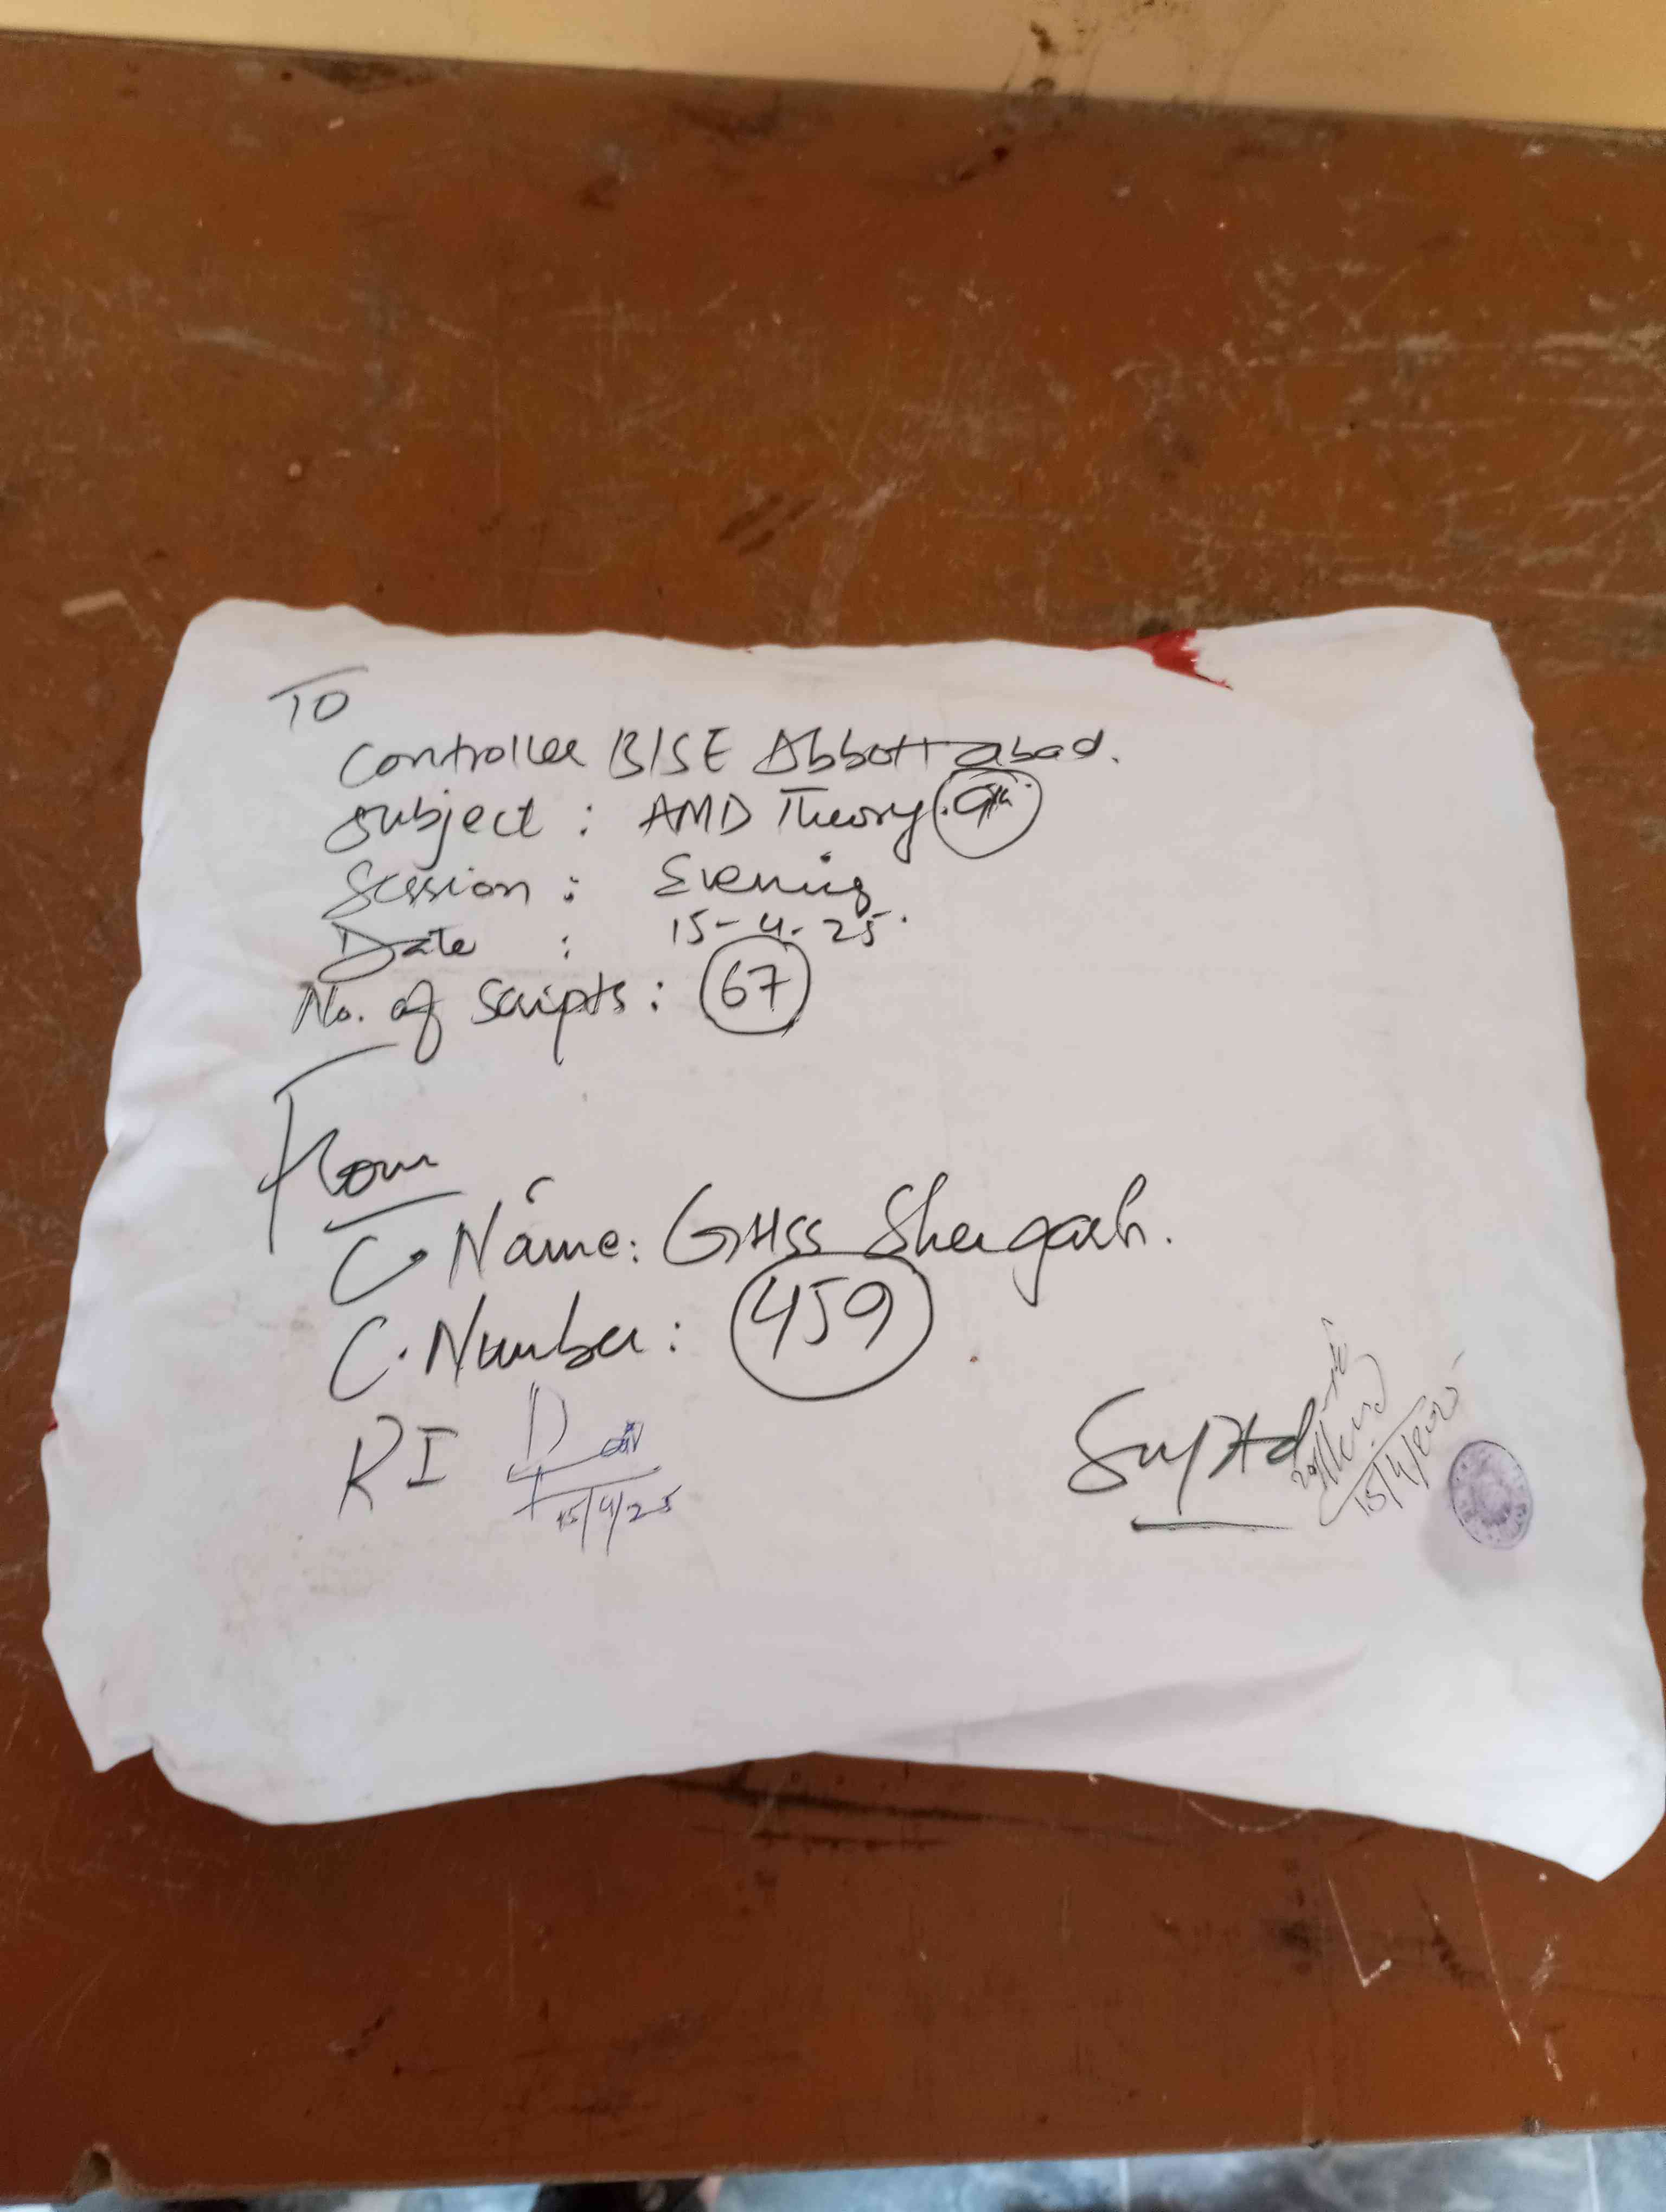 TO
Controller BISE Abbottabad.
Subject : AMD Theory. 9th
Session : Evening
Date : 15-4-25.
No. of Scripts : 67
From
C. Name: GHSS Shergarh.
C. Number : 459
RI
15/4/25
Suptd
15/4/2025